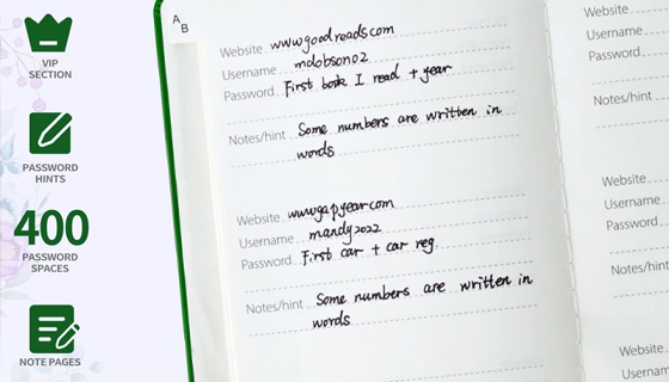 VIP
SECTION
PASSWORD
HINTS
400
PASSWORD
SPACES
NOTE PAGES
A
B
Website www.goodreads.com
Username mdobson02
Password First book I read + year
Notes/hint Some numbers are written in
words
Website www.gapyear.com
Username mandy2022
Password First car + car reg.
Notes/hint Some numbers are written in
words
Website
Username
Password
Notes/hint
Website
Username
Password
Notes/hint
Website
Usernam